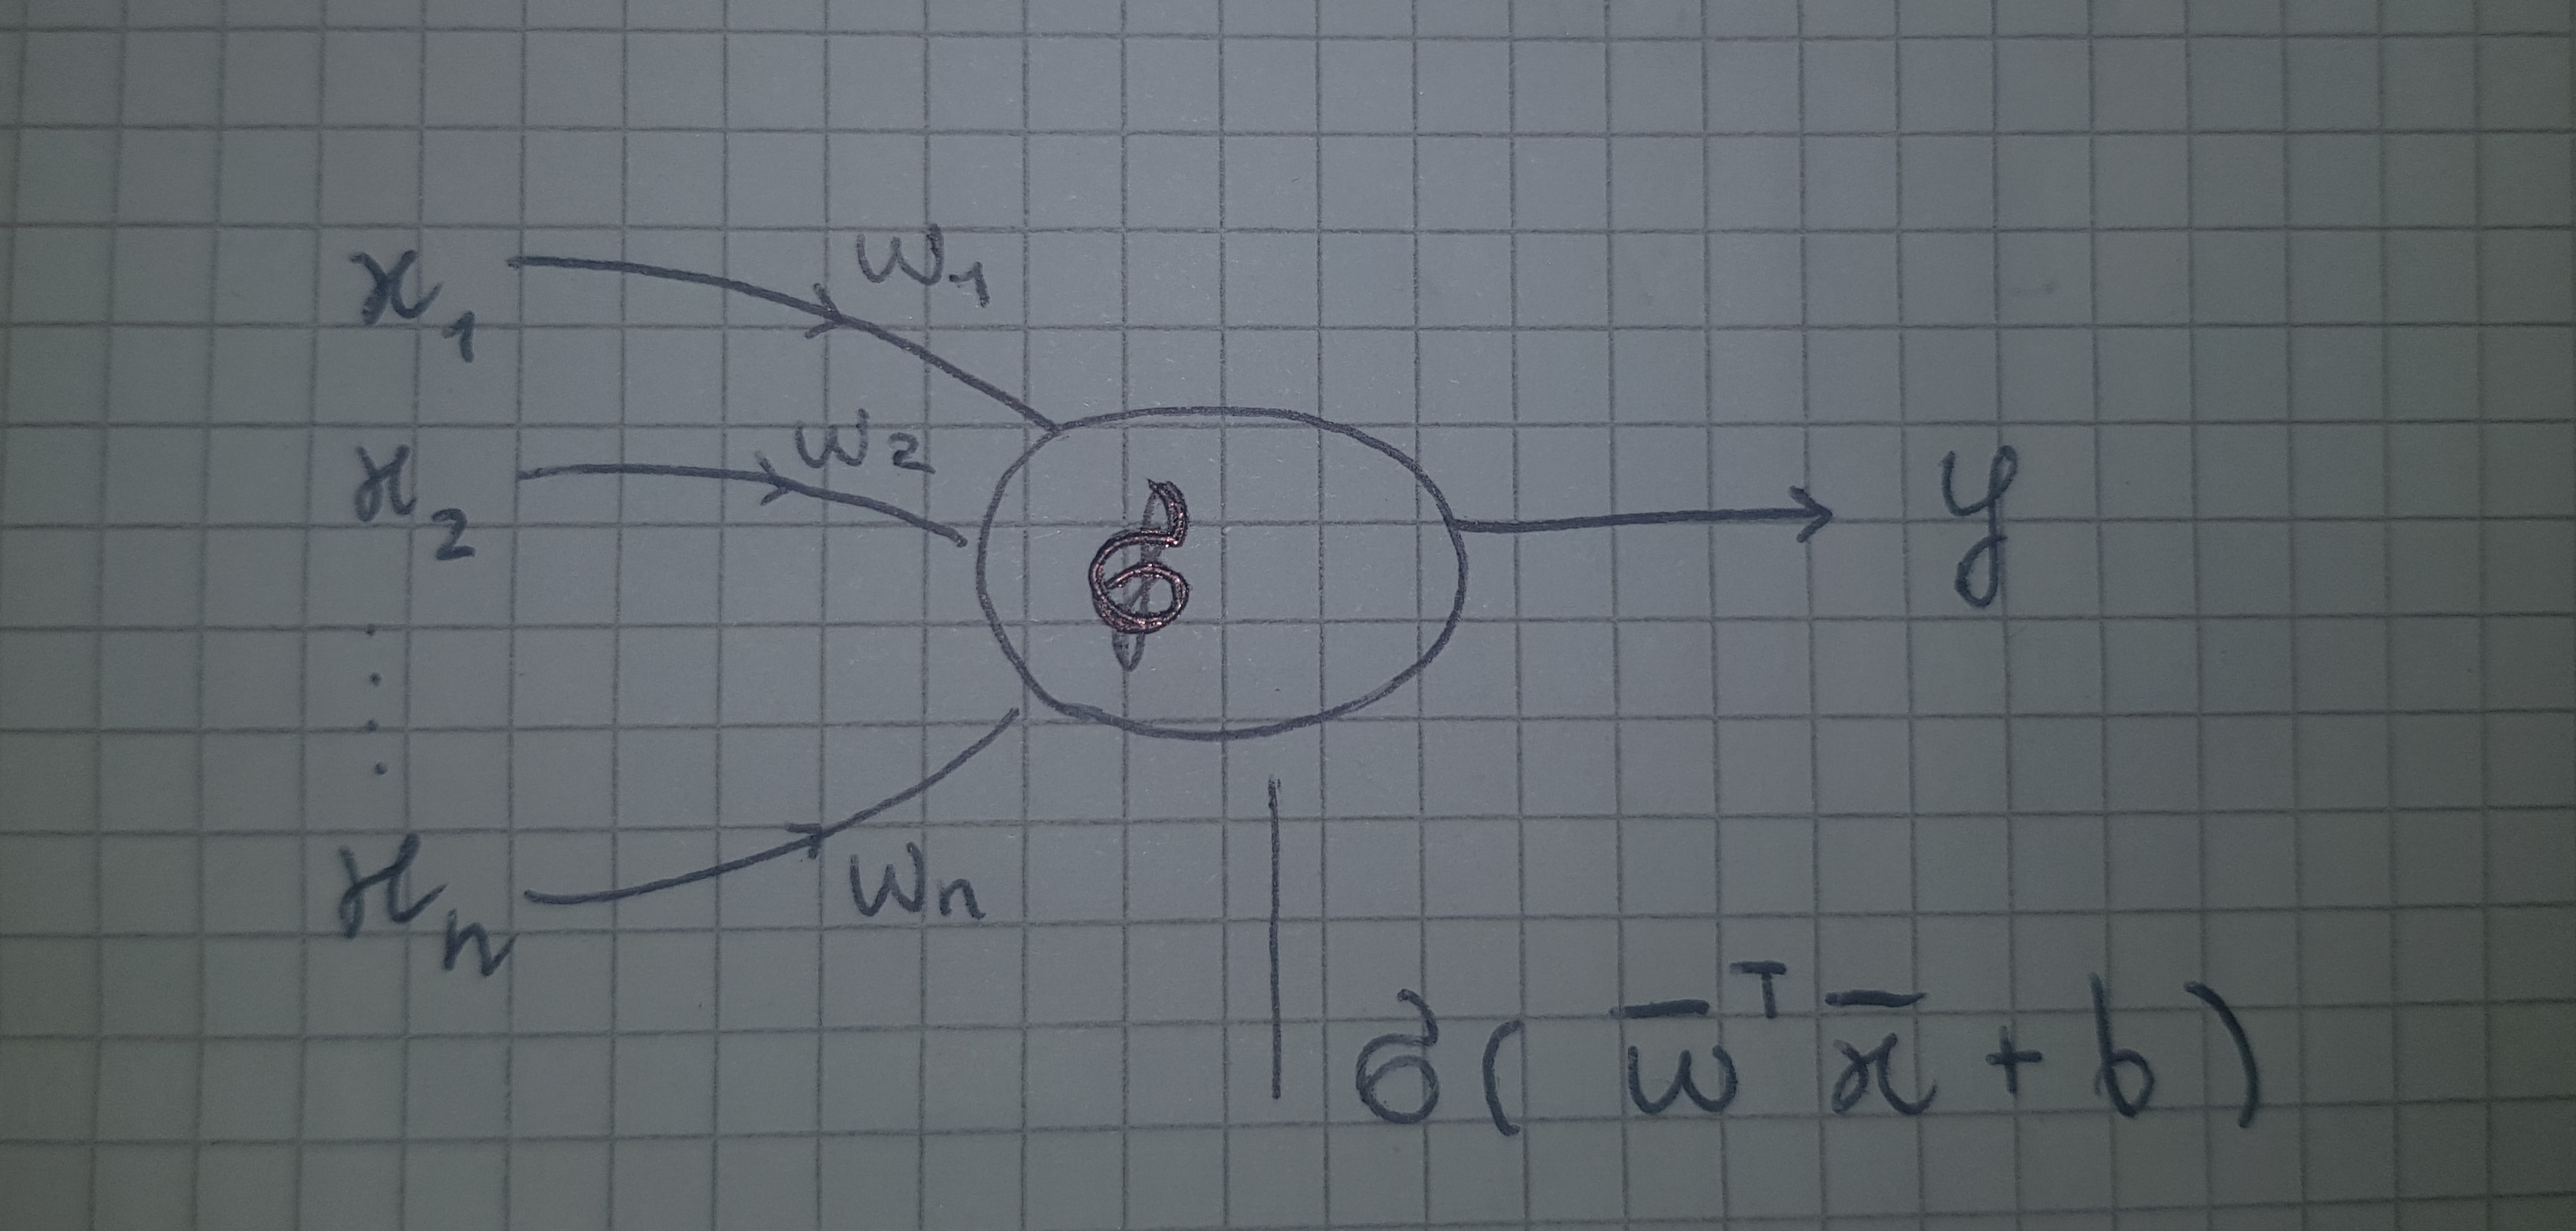 x₁ w₁
x₂ w₂
σ y
⋮
xₙ wₙ
σ( w̅ᵀ x̅ + b )